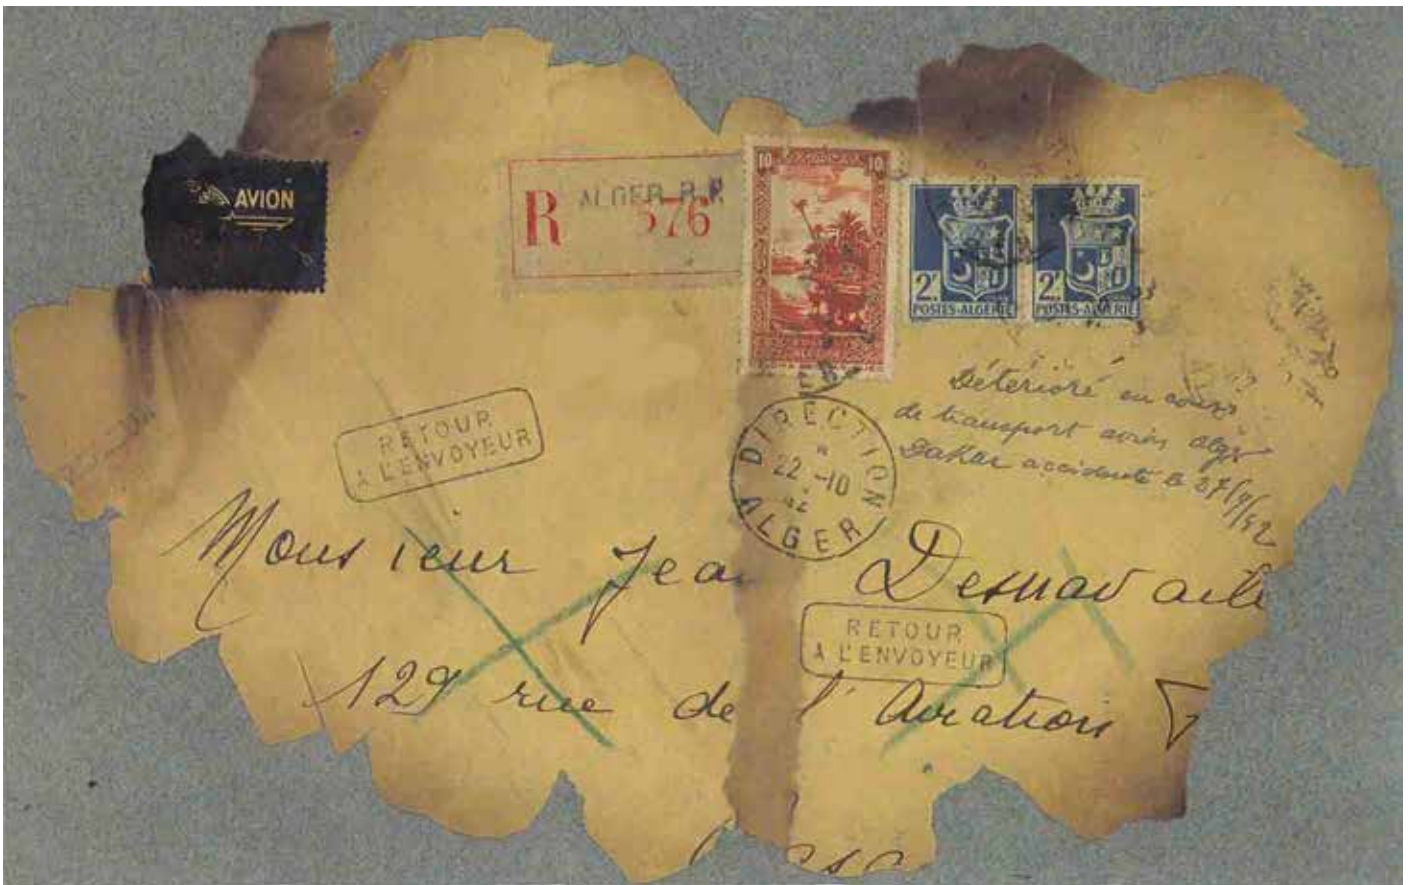 AVION
R ALGER R.P
576
10 10
2F 2F
POSTES-ALGERIE POSTES-ALGERIE
Détérioré en cours
de transport avion Alger
Dakar accidenté le 27/9/42
RETOUR
A L'ENVOYEUR
DIRECTION
22 -10
42
ALGER
Monsieur Jea
RETOUR
A L'ENVOYEUR
129 rue de l'Aviation